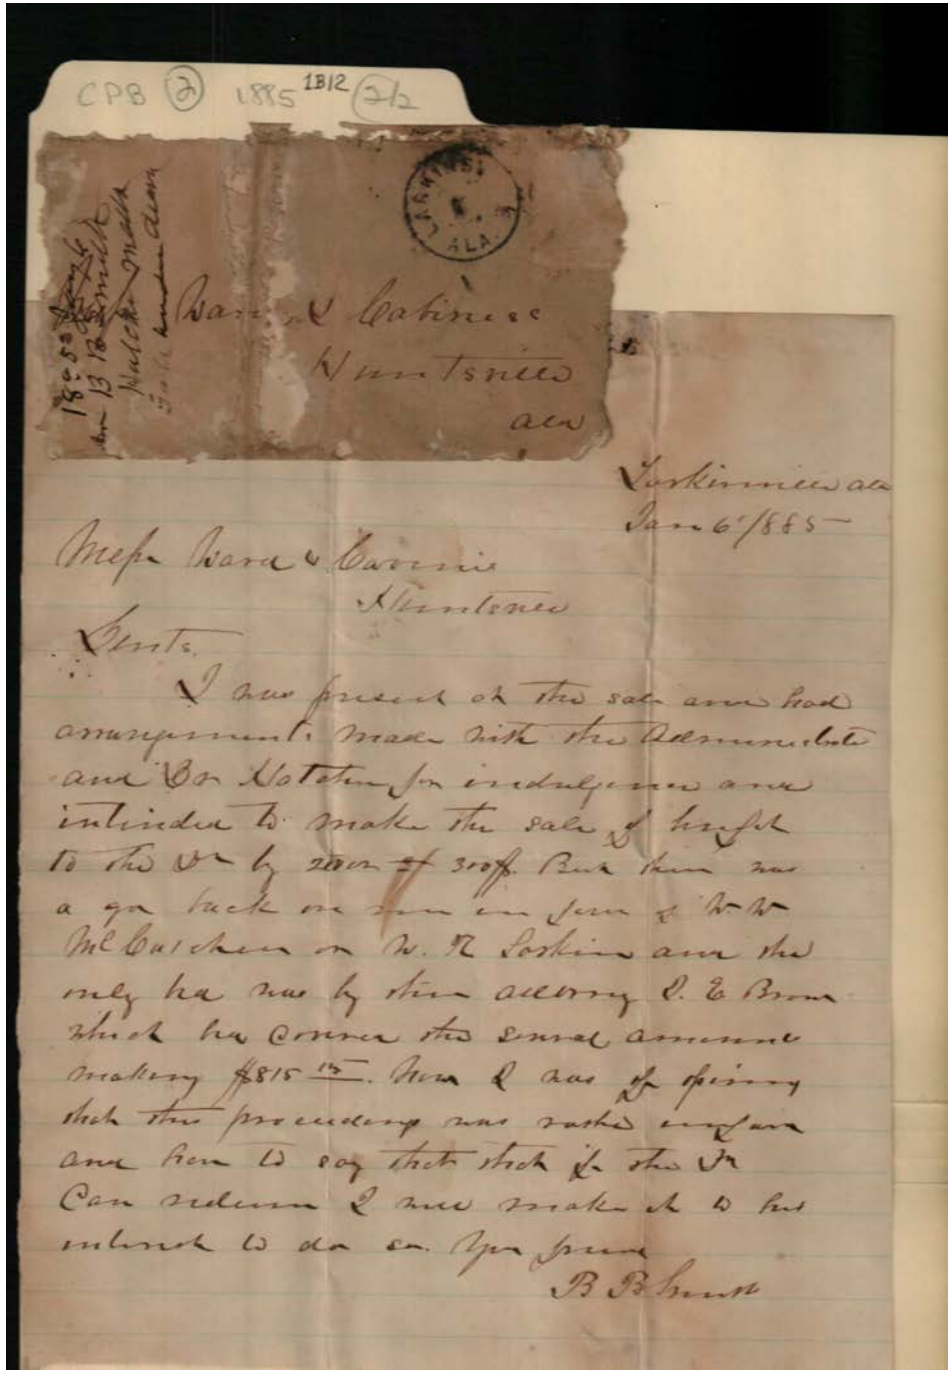 CPB 2 1885 1B12 2/2
LARKINSV
ALA.
1885 Jany 6
B B Smith
Ward & Cabiness
Huntsville
Ala
Larkinsville Ala
Jan 6 1885
Messrs Ward & Cabiness
Huntsville
Gents
I was present at the sale and had
arrangements made with the Administrator
and Dr for indulgence and
intended to make the sale of benefit
to the Dr by 200 or 300$. But there was
a go back on me in favor of W. W
McCutchen or W. R Larkin and the
only bid was by their attorney J. E Brown
which bid covered the several amounts
making $815. Now I was of opinion
that this proceedings was rather unfair
and have to say that if the Dr
Can redeem I will make it to his
interest to do so. Your friend
B B Smith